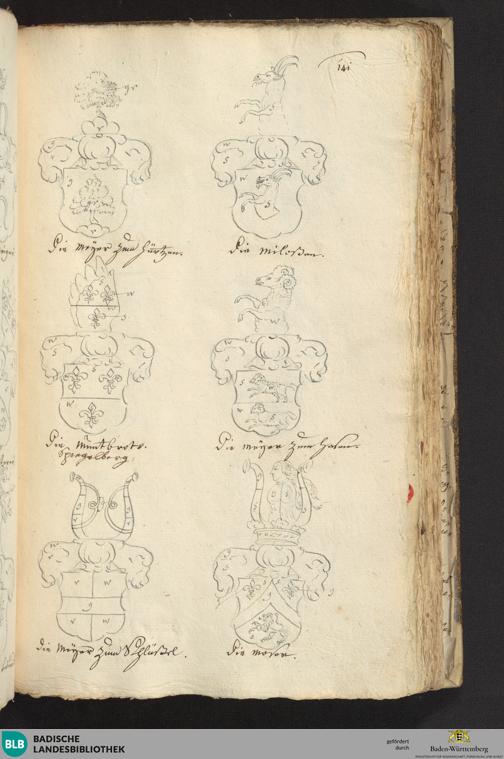 141
Die Meÿer zum Hürtzen.
Die Milossen.
Die Muntbrotr.
Spiegelberg.
Die Meÿer zum Hasen.
die Meÿer zum Schlüssel.
Die Moser.
BLB
BADISCHE
LANDESBIBLIOTHEK
gefördert
durch
Baden-Württemberg